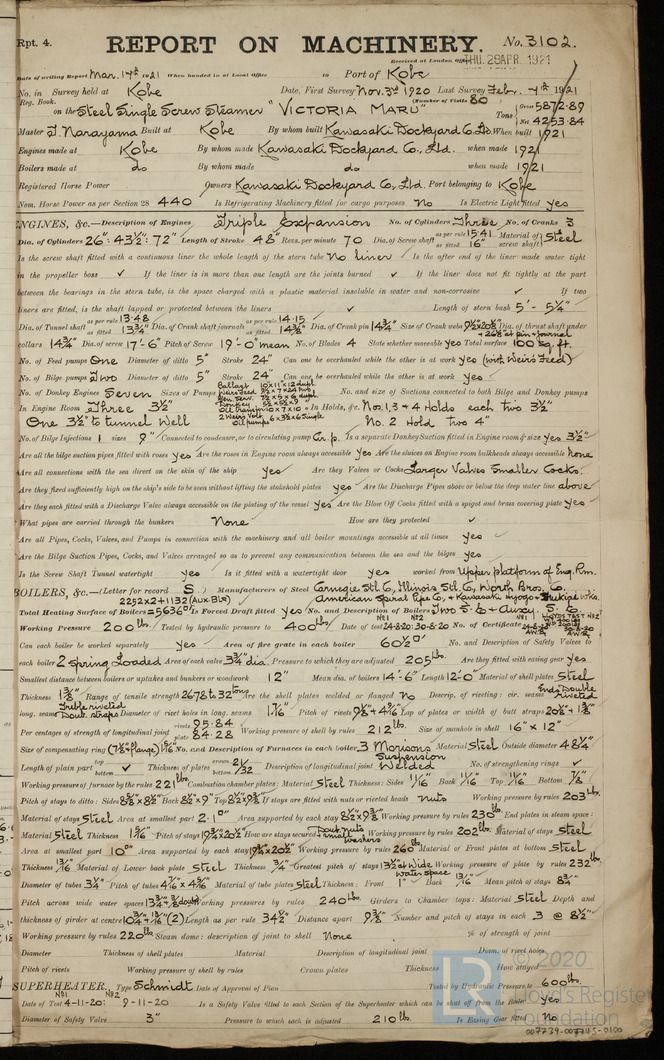 Rpt. 4.
REPORT ON MACHINERY. No. 3102.
Received at London Office THU. 29 APR. 1921
Date of writing Report Mar. 14th 1921 When handed in at Local Office Port of Kobe
No. in Survey held at Kobe Date, First Survey Nov. 3rd 1920 Last Survey Feb. 4th 1921
Reg. Book. (Number of Visits 80)
on the Steel Single Screw Steamer "VICTORIA MARU" Tons Gross 5872.89 Net 4253.84
Master T. Narayama Built at Kobe By whom built Kawasaki Dockyard Co. Ltd. When built 1921
Engines made at Kobe By whom made Kawasaki Dockyard Co., Ltd. when made 1921
Boilers made at do By whom made do when made 1921
Registered Horse Power Owners Kawasaki Dockyard Co., Ltd. Port belonging to Kobe
Nom. Horse Power as per Section 28 440 Is Refrigerating Machinery fitted for cargo purposes No Is Electric Light fitted yes
ENGINES, &c.—Description of Engines Triple Expansion No. of Cylinders Three No. of Cranks 3
Dia. of Cylinders 26": 43½": 72" Length of Stroke 48" Revs. per minute 70 Dia. of Screw shaft as per rule 15.41 as fitted 16" Material of screw shaft Steel
Is the screw shaft fitted with a continuous liner the whole length of the stern tube No liner Is the after end of the liner made water tight
in the propeller boss ✓ If the liner is in more than one length are the joints burned ✓ If the liner does not fit tightly at the part
between the bearings in the stern tube, is the space charged with a plastic material insoluble in water and non-corrosive ✓ If two
liners are fitted, is the shaft lapped or protected between the liners ✓ Length of stern bush 5'-5¼"
Dia. of Tunnel shaft as per rule 13.48 as fitted 13¾" Dia. of Crank shaft journals as per rule 14.15 as fitted 14¾" Dia. of Crank pin 14¾" Size of Crank webs Dia. of thrust shaft under
collars 14¾" Dia. of screw 17'-6" Pitch of Screw 19'-0" mean No. of Blades 4 State whether moveable yes Total surface 100 sq. ft.
No. of Feed pumps One Diameter of ditto 5" Stroke 24" Can one be overhauled while the other is at work yes (with Weir's Feed)
No. of Bilge pumps Two Diameter of ditto 5" Stroke 24" Can one be overhauled while the other is at work yes
No. of Donkey Engines Seven Sizes of Pumps No. and size of Suctions connected to both Bilge and Donkey pumps
In Engine Room Three 3½" In Holds, &c. Nos. 1, 3 & 4 Holds each two 3½"
One 3½" to tunnel Well No. 2 Hold two 4"
No. of Bilge Injections 1 sizes 9" Connected to condenser, or to circulating pump Cir. p. Is a separate Donkey Suction fitted in Engine room & size yes 3½"
Are all the bilge suction pipes fitted with roses yes Are the roses in Engine room always accessible yes Are the sluices on Engine room bulkheads always accessible None
Are all connections with the sea direct on the skin of the ship yes Are they Valves or Cocks Larger Valves Smaller Cocks.
Are they fixed sufficiently high on the ship's side to be seen without lifting the stokehold plates yes Are the Discharge Pipes above or below the deep water line above
Are they each fitted with a Discharge Valve always accessible on the plating of the vessel yes Are the Blow Off Cocks fitted with a spigot and brass covering plate yes
What pipes are carried through the bunkers None How are they protected ✓
Are all Pipes, Cocks, Valves, and Pumps in connection with the machinery and all boiler mountings accessible at all times yes
Are the Bilge Suction Pipes, Cocks, and Valves arranged so as to prevent any communication between the sea and the bilges yes
Is the Screw Shaft Tunnel watertight yes Is it fitted with a watertight door yes worked from Upper platform of Eng. Rm.
BOILERS, &c.—(Letter for record S) Manufacturers of Steel Carnegie Stl. Co., Illinois Stl. Co., Worth Bros. Co.
2252 x 2 + 1132 (Aux. Blr)
Total Heating Surface of Boilers = 5636 Is Forced Draft fitted yes No. and Description of Boilers Two S. E. & Auxy. S. E.
Working Pressure 200 lbs. Tested by hydraulic pressure to 400 lbs. Date of test 24-8-20: 30-8-20 No. of Certificate
Can each boiler be worked separately yes Area of fire grate in each boiler 60½ No. and Description of Safety Valves to
each boiler 2 spring Loaded Area of each valve 3¾ dia. Pressure to which they are adjusted 205 lbs. Are they fitted with easing gear yes
Smallest distance between boilers or uptakes and bunkers or woodwork 12" Mean dia. of boilers 14'-6" Length 12'-0" Material of shell plates Steel
Thickness 1⅜" Range of tensile strength 26.78 to 32 tons Are the shell plates welded or flanged No Descrip. of riveting: cir. seams Ends Double riveted
long. seams Treble riveted Doub. straps Diameter of rivet holes in long. seams 1 7/16" Pitch of rivets Lap of plates or width of butt straps
Per centages of strength of longitudinal joint rivets 95.84 plate 84.28 Working pressure of shell by rules 212 lbs. Size of manhole in shell 16" x 12"
Size of compensating ring (7⅞" flange) No. and Description of Furnaces in each boiler 3 Morisons Suspension Material Steel Outside diameter 48¼"
Length of plain part top bottom ✓ Thickness of plates crown bottom 21/32 Description of longitudinal joint Welded No. of strengthening rings ✓
Working pressure of furnace by the rules 221 lbs. Combustion chamber plates: Material Steel Thickness: Sides 11/16" Back 11/16" Top 11/16" Bottom 7/8"
Pitch of stays to ditto: Sides 8⅞ x 8½" Back 8½ x 9" Top If stays are fitted with nuts or riveted heads nuts Working pressure by rules 203 lbs.
Material of stays Steel Area at smallest part 2.10" Area supported by each stay Working pressure by rules 230 lbs. End plates in steam space:
Material Steel Thickness Pitch of stays 19¾ x 20½" How are stays secured Doub. nuts & small washers Working pressure by rules 202 lbs. Material of stays Steel
Area at smallest part 10" Area supported by each stay 19¾ x 20½" Working pressure by rules 260 lbs. Material of Front plates at bottom Steel
Thickness 13/16" Material of Lower back plate Steel Thickness ¾" Greatest pitch of stays 13½" at Wide water space Working pressure of plate by rules 232 lbs.
Diameter of tubes 3¼" Pitch of tubes Material of tube plates Steel Thickness: Front 1" Back 13/16" Mean pitch of stays 8¾"
Pitch across wide water spaces Working pressures by rules 240 lbs. Girders to Chamber tops: Material Steel Depth and
thickness of girder at centre Length as per rule 34¾" Distance apart 9⅜" Number and pitch of stays in each 3 @ 8½"
Working pressure by rules 220 lbs. Steam dome: description of joint to shell None % of strength of joint
Diameter Thickness of shell plates Material Description of longitudinal joint Diam. of rivet holes
Pitch of rivets Working pressure of shell by rules Crown plates Thickness How stayed
SUPERHEATER. Type Schmidt Date of Approval of Plan Tested by Hydraulic Pressure to 600 lbs.
Date of Test No1 4-11-20: No2 9-11-20 Is a Safety Valve fitted to each Section of the Superheater which can be shut off from the Boiler Yes
Diameter of Safety Valve 3" Pressure to which each is adjusted 210 lbs. Is Easing Gear fitted No
© 2020
LR
Lloyd's Register
Foundation
007739-007745-0100